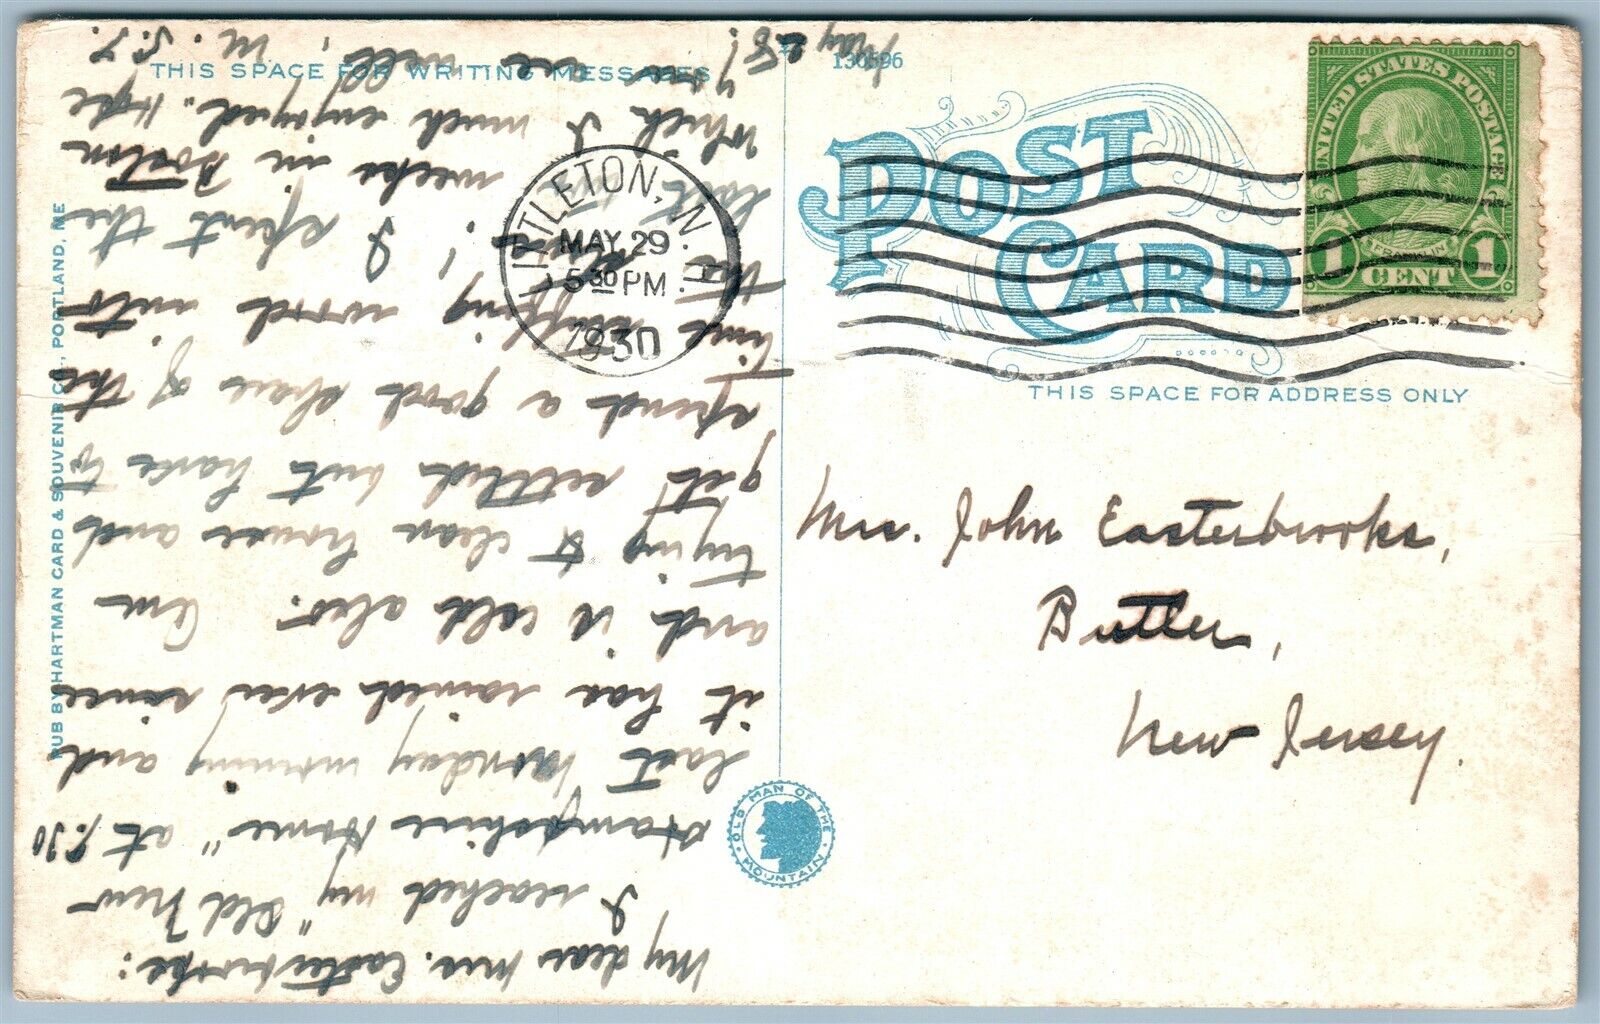 THIS SPACE FOR WRITING MESSAGES
136596
PUB BY HARTMAN CARD & SOUVENIR CO., PORTLAND, ME
LITTLETON, N. H.
MAY 29
5 30 PM
1930
POST CARD
THIS SPACE FOR ADDRESS ONLY
UNITED STATES POSTAGE
FRANKLIN
1 CENT 1
Mrs. John Easterbrooks,
Butler,
New Jersey.
OLD MAN OF THE MOUNTAIN
May 28
My dear Mrs. Easterbrooks:
I reached my "Old New
Hampshire Home" at 5:30
last Monday morning and
it has rained ever since
and is cold also. Am
trying to clean house and
get settled but have to
spend a good share of the
time keeping wood into
the stove! I spent the
last two weeks in Boston
which I much enjoyed. Hope
you are well, M. S. T.